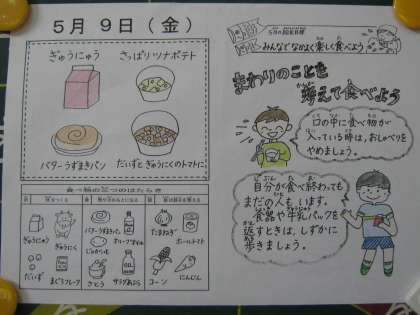 5月 9日(金)
ぎゅうにゅう
さっぱりツナポテト
バターうずまきパン
だいずとぎゅうにくのトマトに
食べ物の三つのはたらき
ぎゅうにゅう
ぎゅうにく
だいず
まぐろフレーク
バターうずまきパン
じゃがいも
オリーブオイル
さとう
サラダあぶら
たまねぎ
ホールトマト
コーン
にんじん
5月の給食目標
みんなでなかよく楽しく食べよう
まわりのことを
考えて食べよう
口の中に食べ物が
入っている時は、おしゃべりを
やめましょう。
自分が食べ終わっても
まだの人もいます。
食器や牛乳パックを
返すときは、しずかに
歩きましょう。